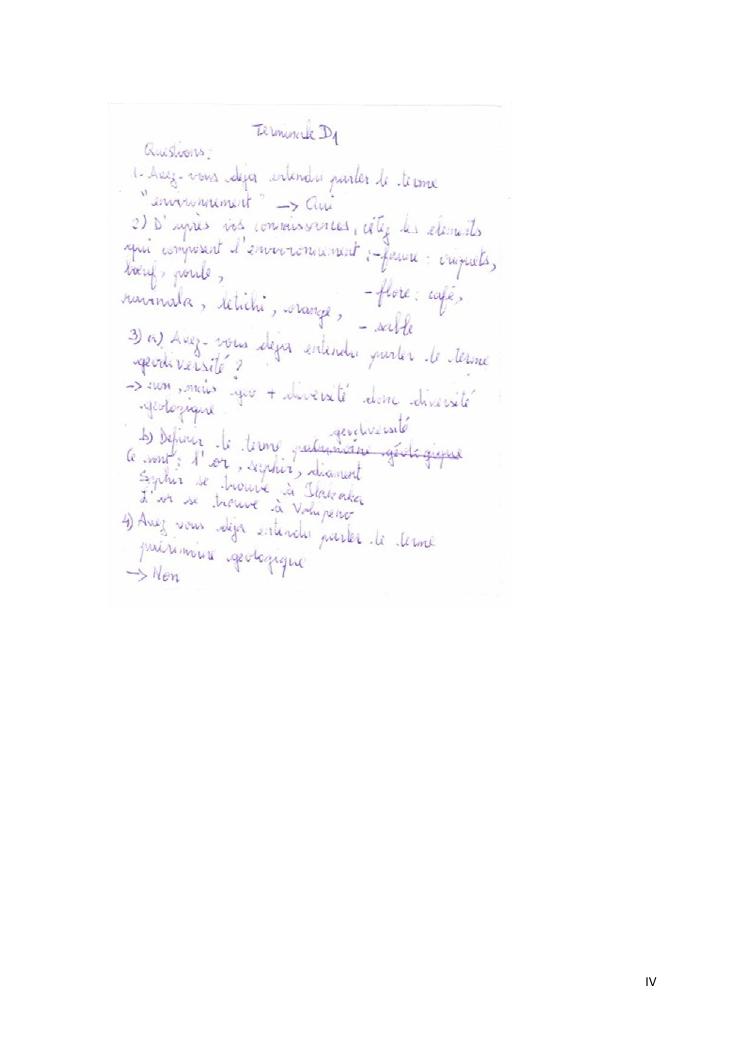 Terminale D1
Questions:
1- Avez-vous deja entendu parler le terme
"environnement" -> Oui
2) D'après vos connaissances, citez les elements
qui composent l'environnement : - faune : criquets,
bœuf, poule,
- flore : café,
ravinala, letichi, orange,
- sable
3) a) Avez-vous deja entendu parler le terme
géodiversité ?
-> non, mais géo + diversité donc diversité
géologique
géodiversité
b) Définir le terme patrimoine géologique
Ce sont : l'or, saphir, diament
Saphir se trouve à Ilakaka
L'or se trouve à Vohipeno
4) Avez vous déja entendu parler le terme
patrimoine géologique
-> Non
IV